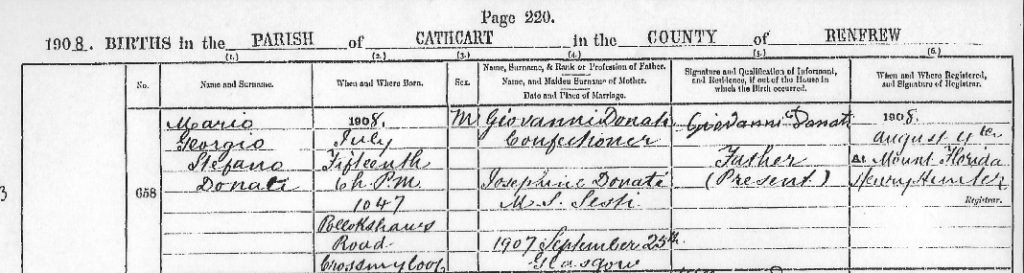 Page 220.
1908. BIRTHS in the PARISH of CATHCART in the COUNTY of RENFREW
(1.) (2.) (3.) (4.) (5.) (6.)
No.
Name and Surname.
When and Where Born.
Sex.
Name, Surname, & Rank or Profession of Father.
Name, and Maiden Surname of Mother.
Date and Place of Marriage.
Signature and Qualification of Informant,
and Residence, if out of the House in
which the Birth occurred.
When and Where Registered,
and Signature of Registrar.
3
658
Mario
Georgio
Stefano
Donati
1908.
July
Fifteenth
6h P.M.
1047
Pollokshaws
Road
Crossmyloof
M
Giovanni Donati
Confectioner
Josephine Donati
M.S. Sesti
1907 September 25th
Glasgow
Giovanni Donati
Father
(Present)
1908.
August 4th
At Mount Florida
Henry Hunter
Registrar.